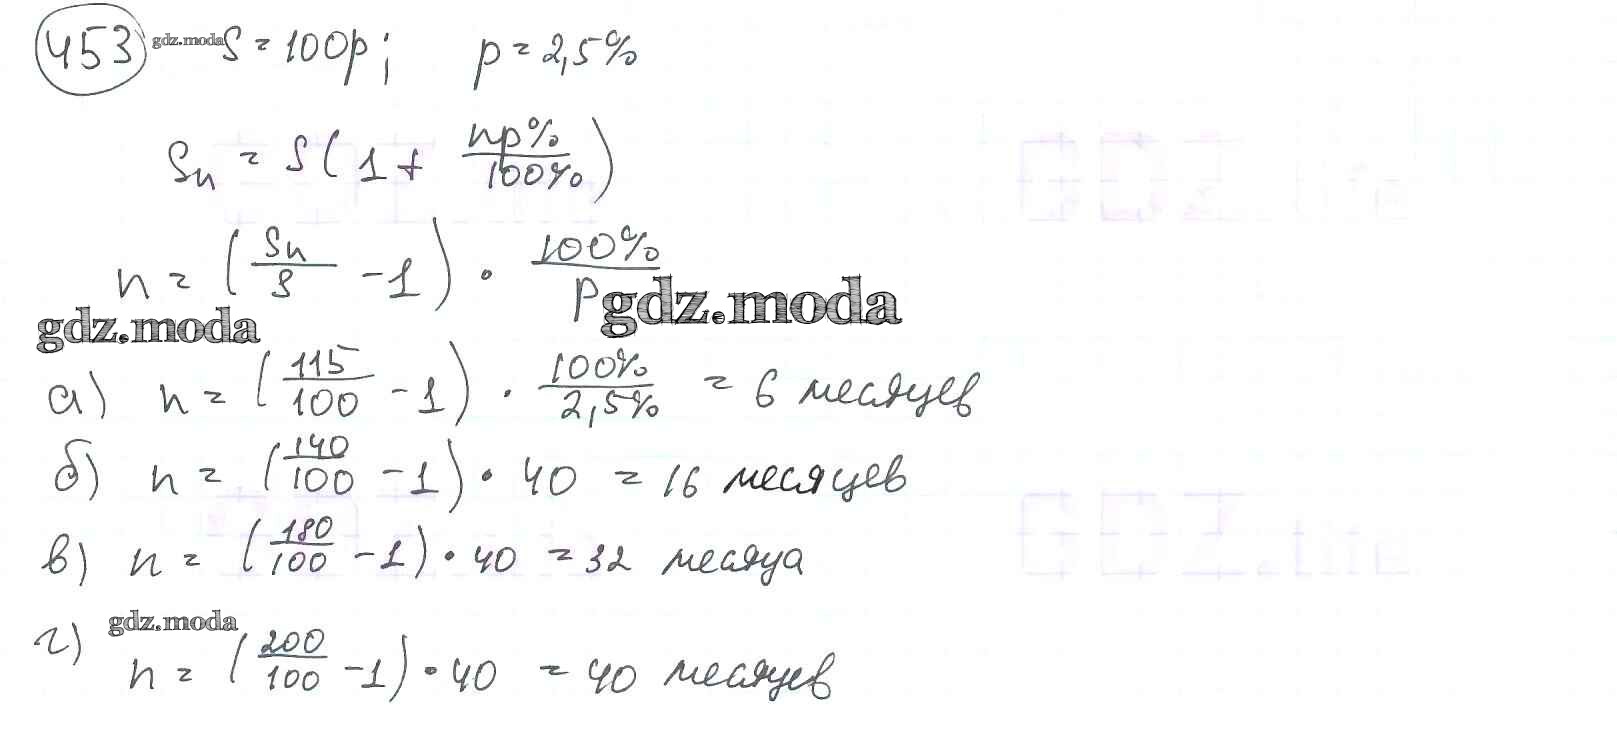 453 gdz.moda S = 100р; p = 2,5%
Sn = S(1 + np%/100%)
n = (Sn/S - 1) · 100%/p gdz.moda
gdz.moda
а) n = (115/100 - 1) · 100%/2,5% = 6 месяцев
б) n = (140/100 - 1) · 40 = 16 месяцев
в) n = (180/100 - 1) · 40 = 32 месяца
г) gdz.moda
n = (200/100 - 1) · 40 = 40 месяцев